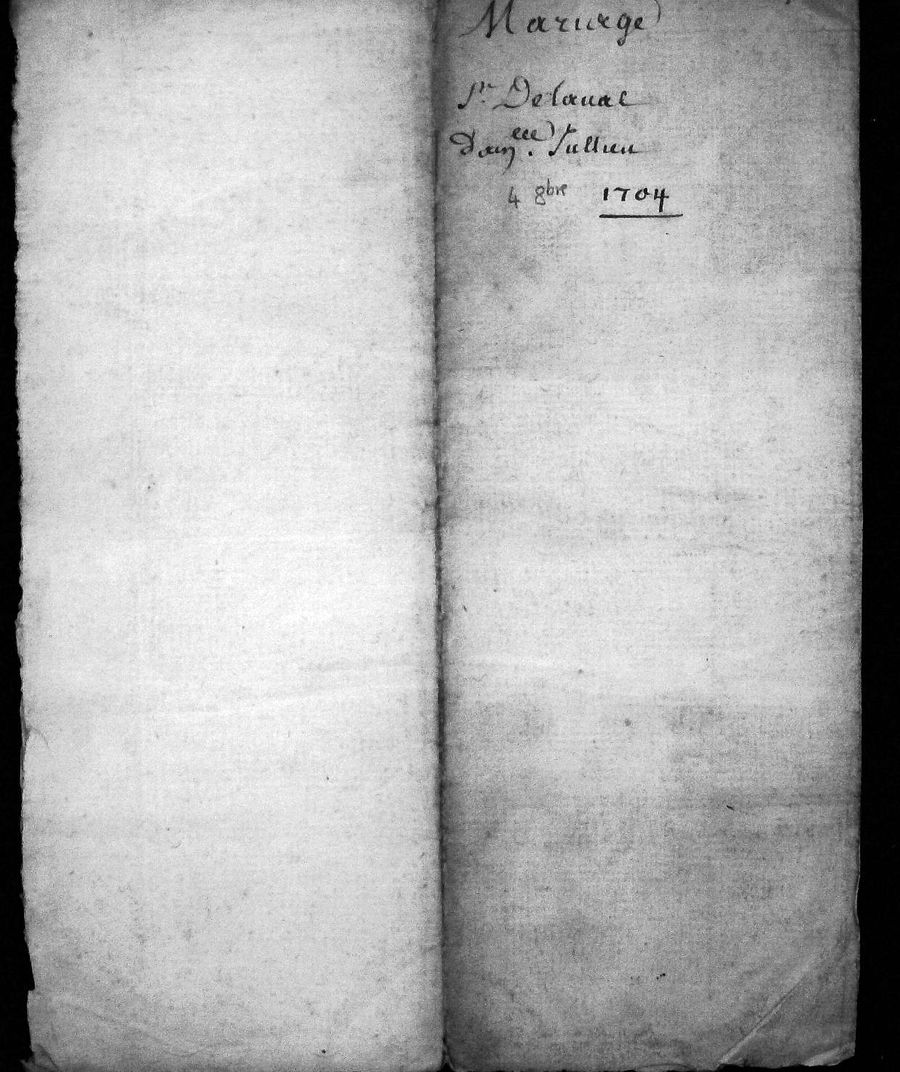 Mariage
Sr. Delaual
Damlle. Jullien
4 8bre 1704